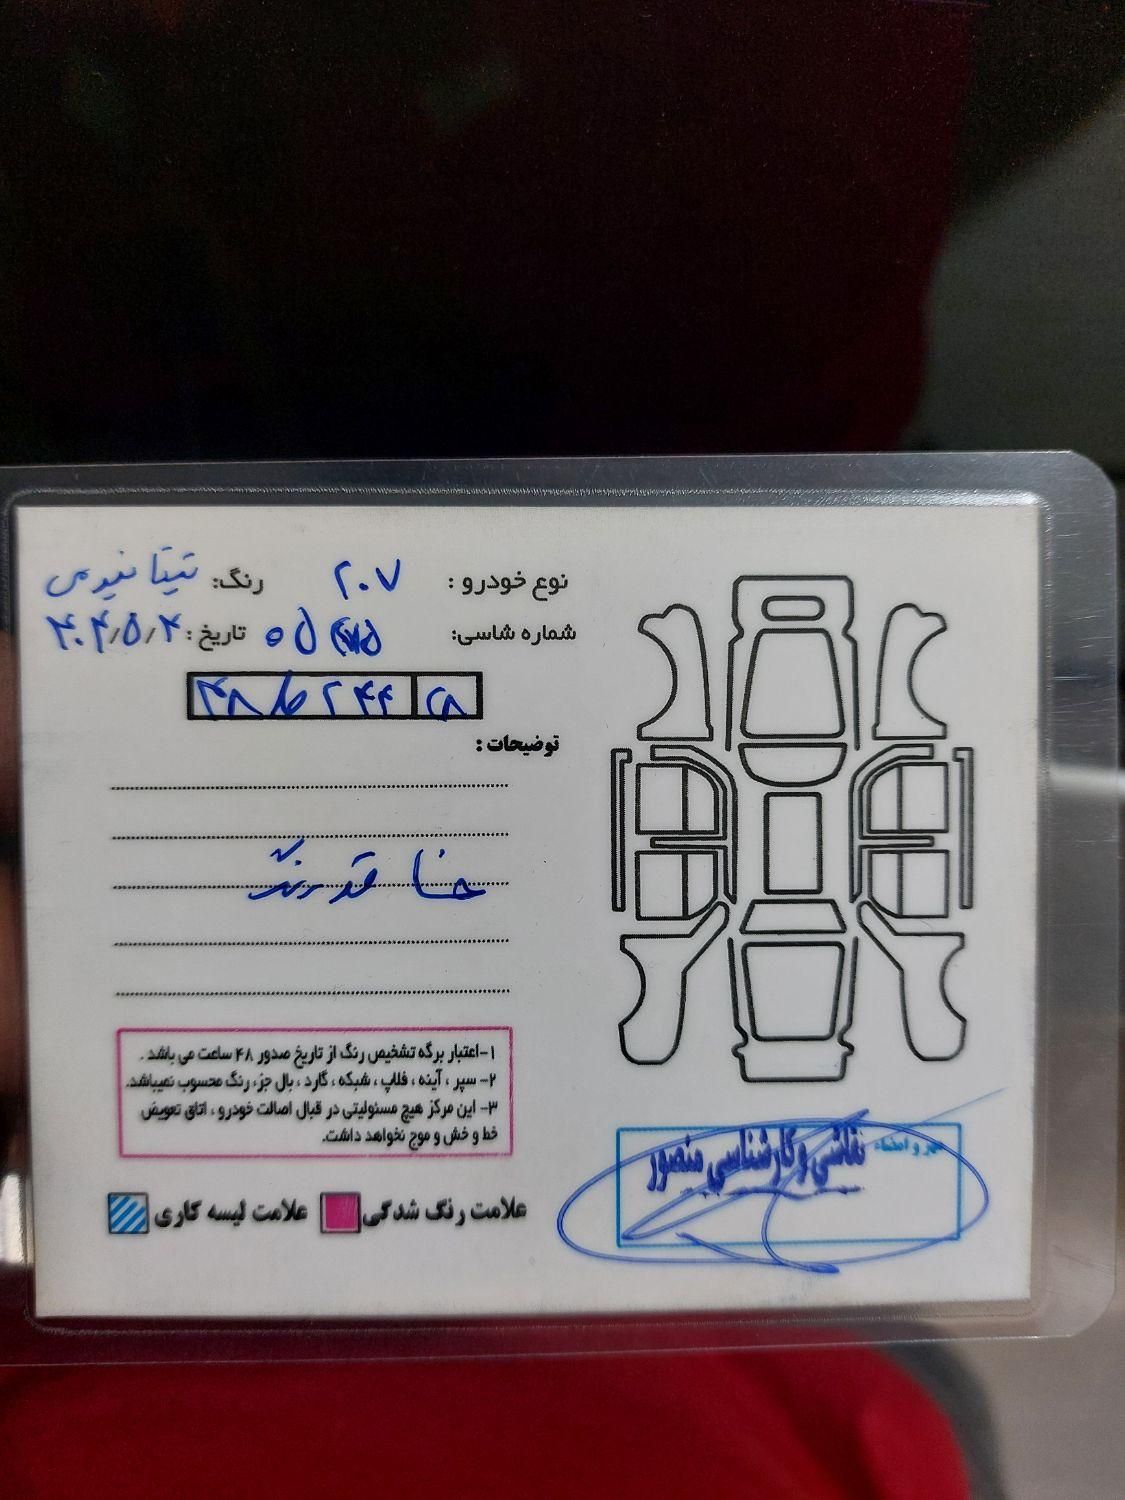 نوع خودرو : ۲۰۷ رنگ: تیتانیومی
شماره شاسی: تاریخ : ۴۰۴/۵/۴
توضیحات :
فاقد رنگ
۱-اعتبار برگه تشخیص رنگ از تاریخ صدور ۴۸ ساعت می باشد .
۲- سپر ، آینه ، فلاپ ، شبکه ، گارد ، بال جزء رنگ محسوب نمیباشد.
۳- این مرکز هیچ مسئولیتی در قبال اصالت خودرو ، اتاق تعویض
خط و خش و موج نخواهد داشت.
مهر و امضاء
نقاشی و کارشناسی منصور
علامت رنگ شدگی علامت لیسه کاری